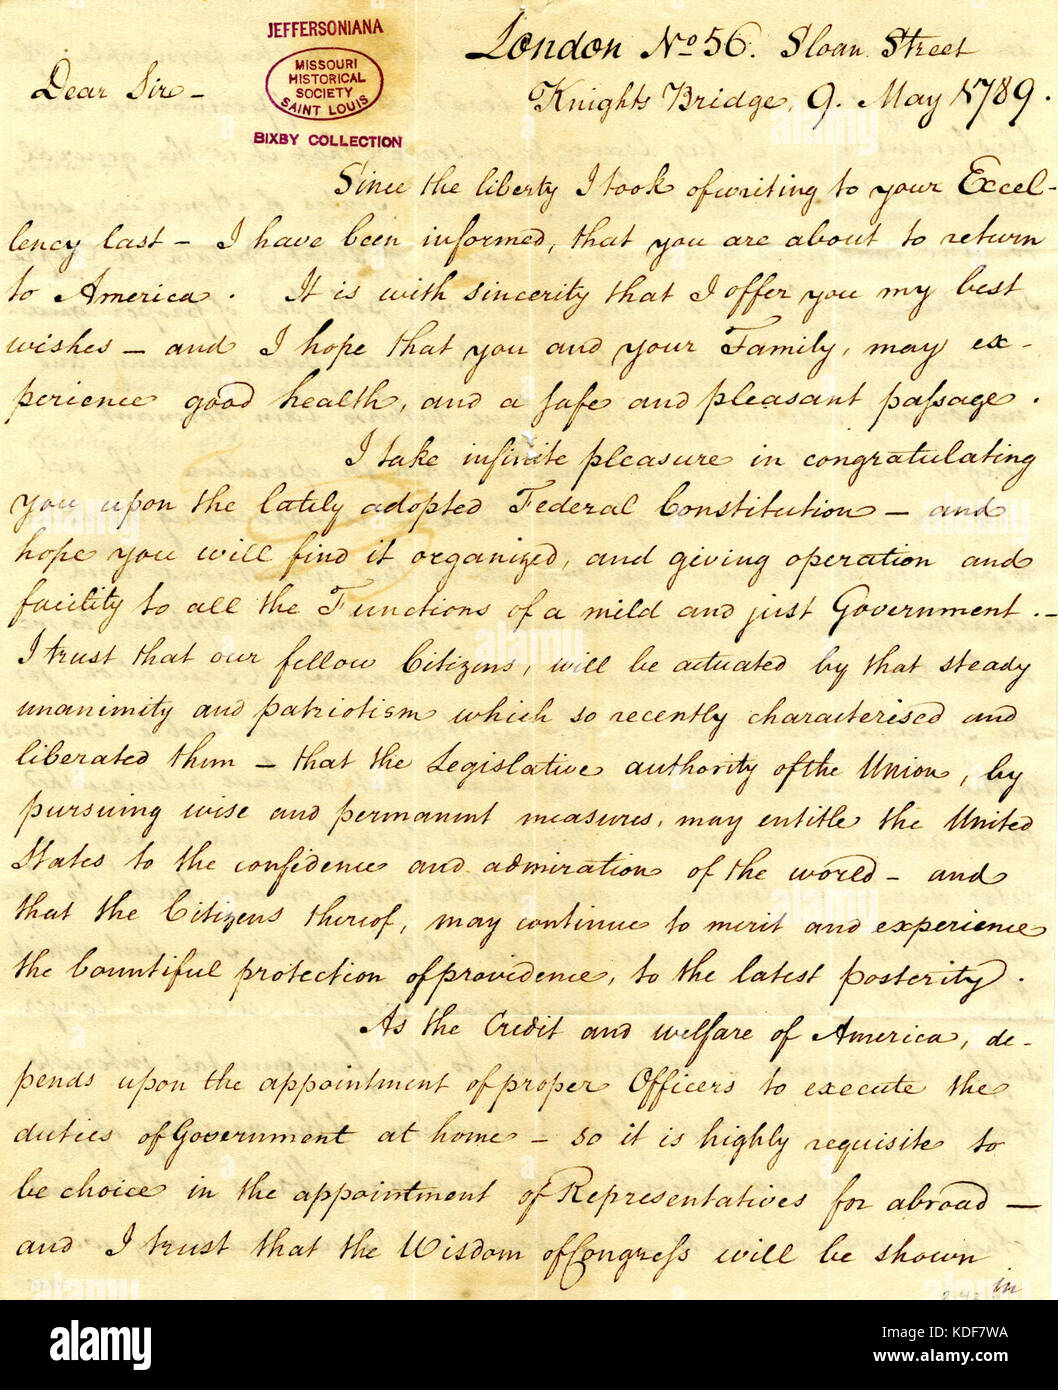 JEFFERSONIANA
MISSOURI
HISTORICAL
SOCIETY
SAINT LOUIS
BIXBY COLLECTION
London No 56. Sloan Street
Dear Sir –
Knights Bridge, 9. May 1789.
Since the liberty I took of writing to your Excel-
lency last – I have been informed, that you are about to return
to America. It is with sincerity that I offer you my best
wishes – and I hope that you and your Family, may ex-
perience good health, and a safe and pleasant passage.
I take infinite pleasure in congratulating
you upon the lately adopted Federal Constitution – and
hope you will find it organized, and giving operation and
facility to all the Functions of a mild and just Government. –
I trust that our fellow Citizens, will be actuated by that steady
unanimity and patriotism which so recently characterised and
liberated them – that the Legislative authority of the Union, by
pursuing wise and permanent measures, may entitle the United
States to the confidence and admiration of the world – and
that the Citizens thereof, may continue to merit and experience
the bountiful protection of providence, to the latest posterity.
As the Credit and welfare of America, de-
pends upon the appointment of proper Officers to execute the
duties of Government at home – so it is highly requisite to
be choice in the appointment of Representatives for abroad –
and I trust that the Wisdom of Congress will be shown
in
alamy
Image ID: KDF7WA
www.alamy.com